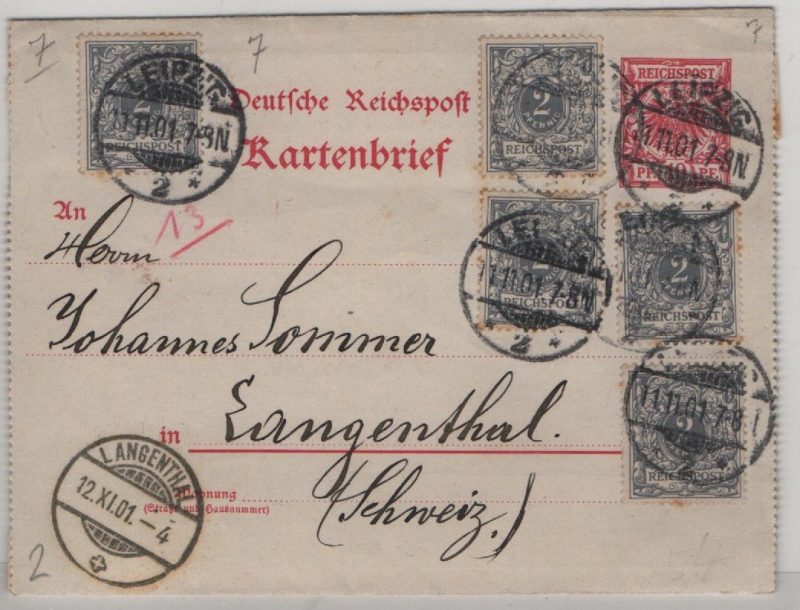 7
7
7
2
REICHSPOST
LEIPZIG
11.11.01.7-8N
2
2
PFENNIG
REICHSPOST
REICHSPOST
LEIPZIG
11.11.01.7-8N
Deutsche Reichspost
Kartenbrief
An
13
Herrn
2
REICHSPOST
11.11.01.7-8N
2
2
REICHSPOST
Johannes Sommer
in Langenthal.
2
11.11.01.7-8
LANGENTHAL
12.XI.01.-4
Wohnung
(Straße und Hausnummer)
(Schweiz.)
2